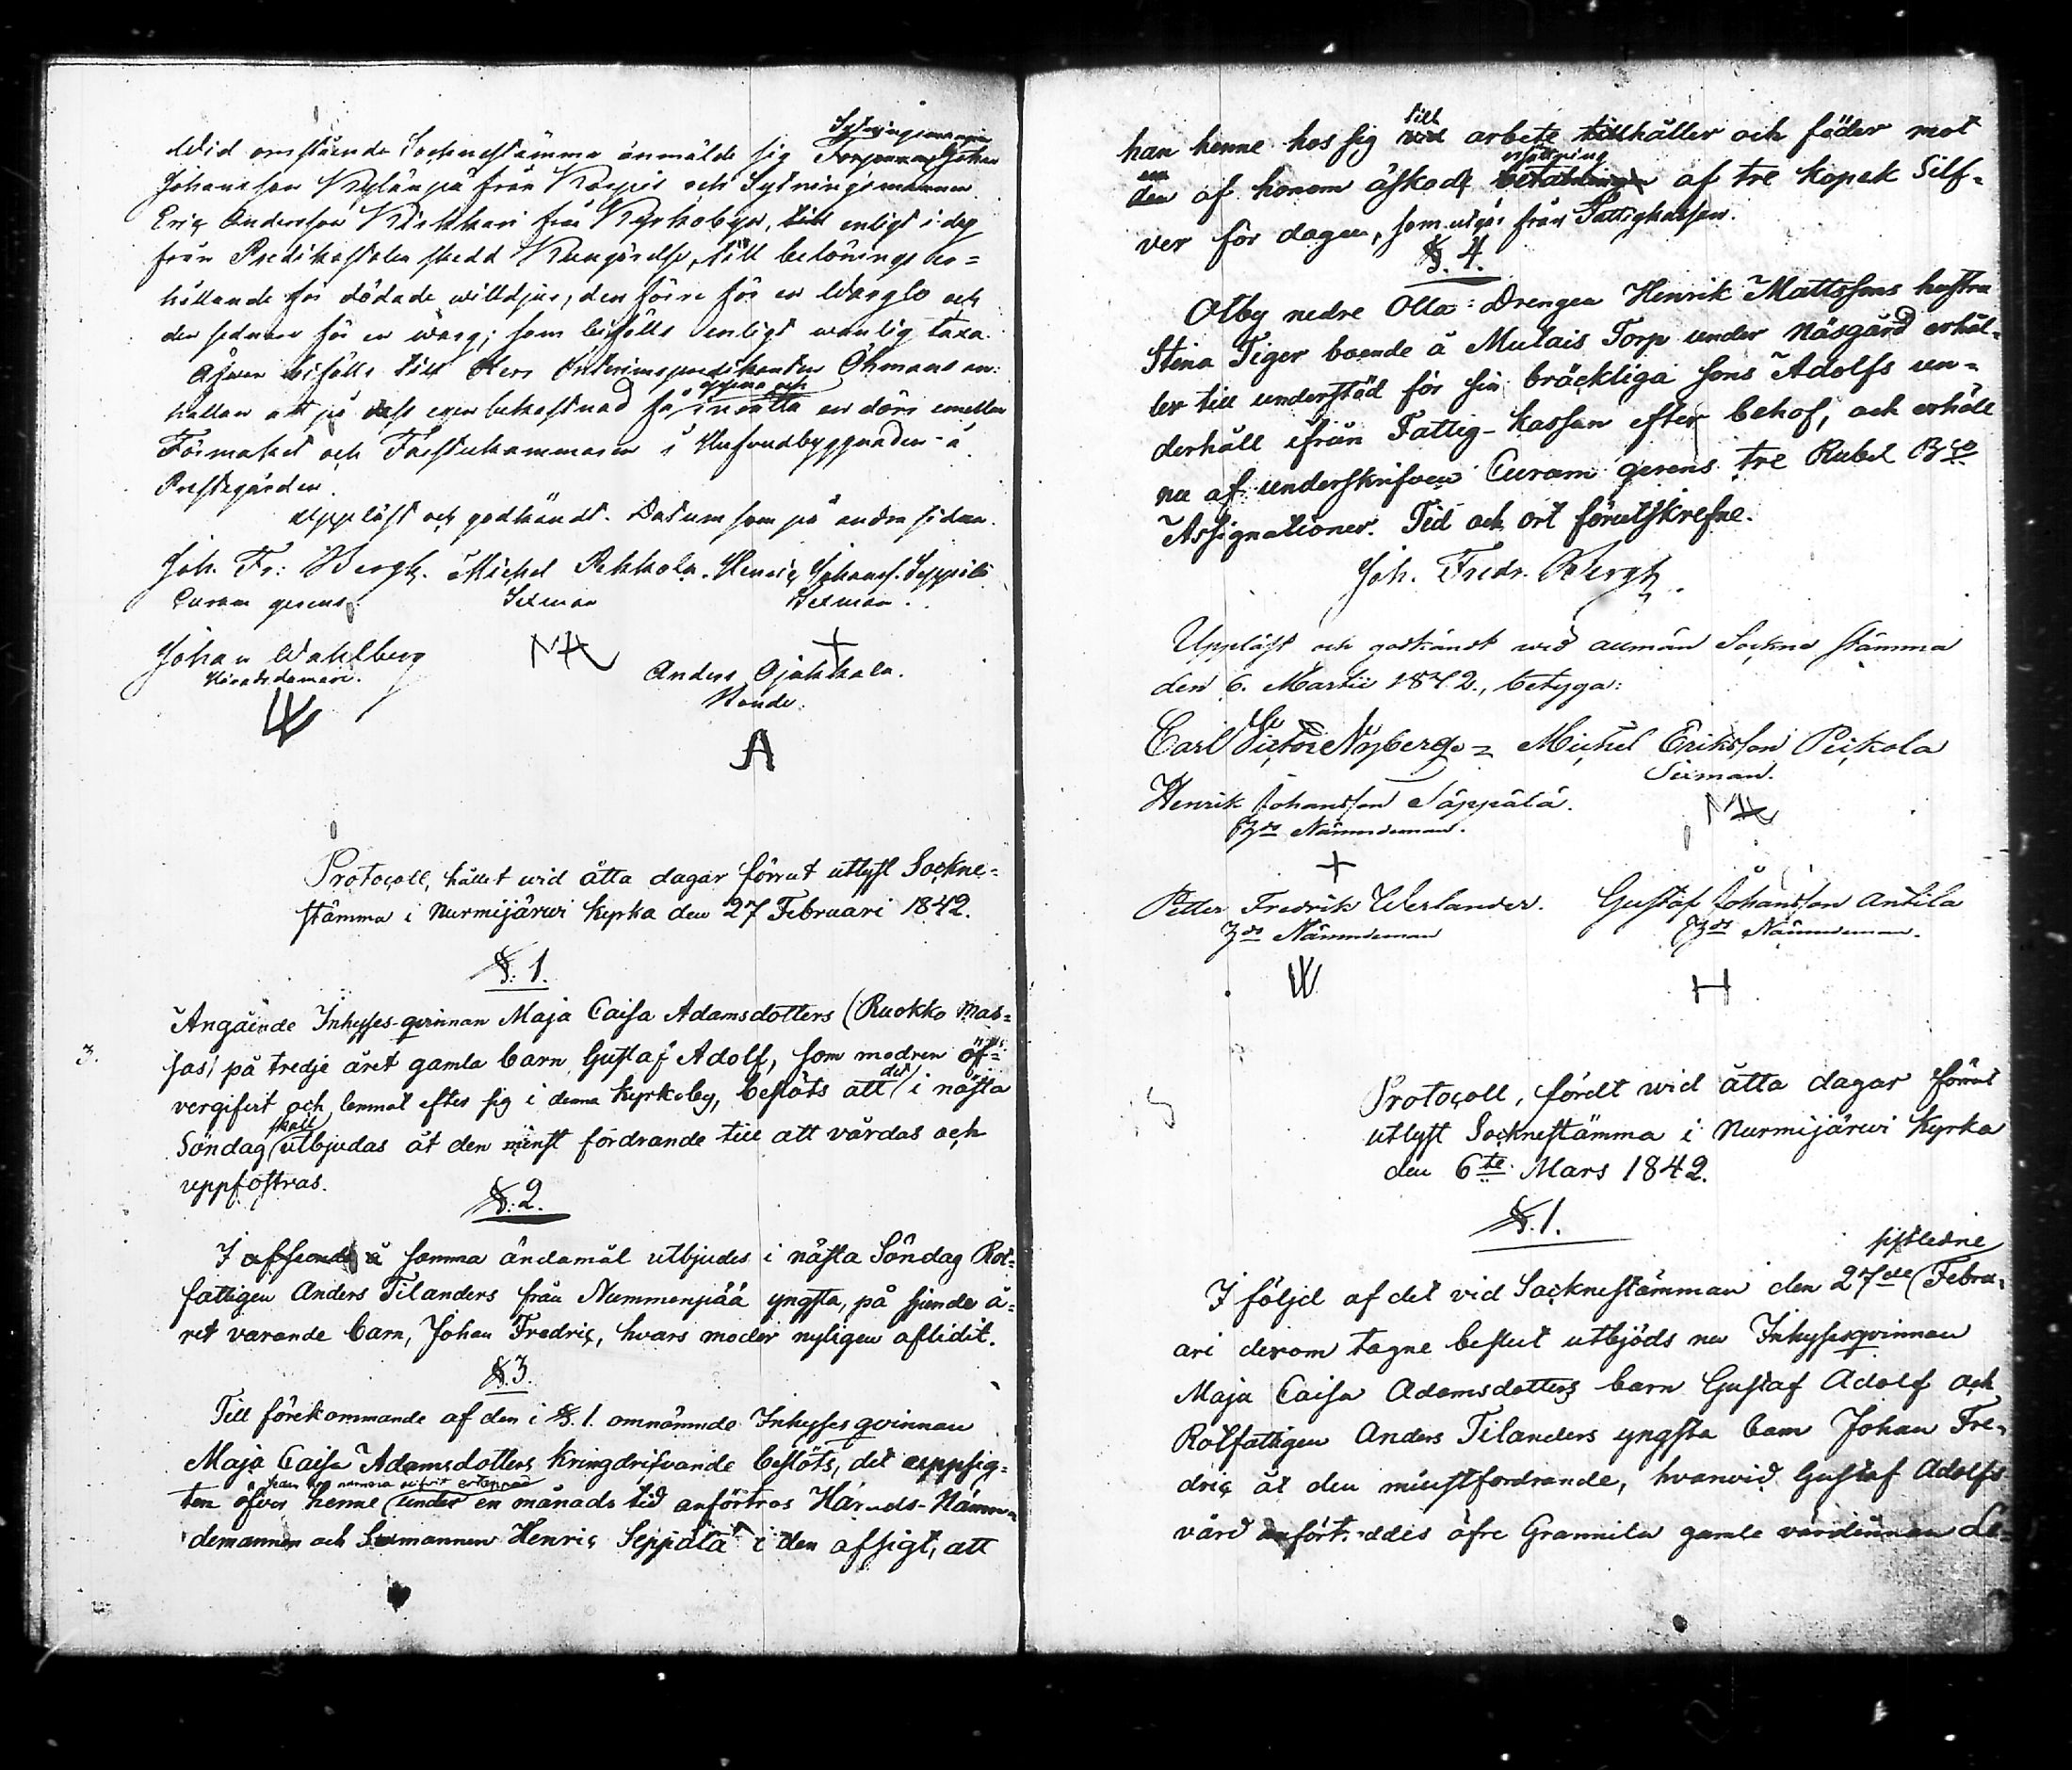 Wid omstående Sockenstämma anmälde sig Sytningsmannen Johan
Johansson Kylänpä från Korpis och Sytningsmannen
Eric Andersson Kirkkari från Kyrkobyn, enligt i dag
från Predikostolen skedd Kungörelse, till belönings er=
hållande för dödade willdjur, den förre för en Warglo och
den sednare för en warg; som bifölls enligt wanlig taxa.
Äfwen bifölls till Herr Interimspredikanten Öhmans an=
hållan att på egen bekostnad få öppna och insätta en dörr emellan
Förmaket och Förstukammaren i Hufvudbyggnaden å
Prestegården.
Uppläst och godkändt. Datum som på andra sidan.
Joh. Fr: Bergh. Michel Pekkola. Henric Johans. Seppälä
Curam gerens. Sexman Sexman.
Johan Wahlberg
Häradsdomare.
Anders Ojakkala.
Bonde.
A
Protocoll, hållet wid åtta dagar förrut utlyst Sockne=
stämma i Nurmijärwi kyrka den 27 Februari 1842.
§. 1.
3.
Angående Inhyses-qvinnan Maja Caisa Adamsdotters (Ruokko Mas=
sas) på tredje året gamla barn Gustaf Adolf, som modren öf=
vergifvit och lemnat efter sig i denna kyrkoby, beslöts att det i nästa
Söndag skall utbjudas åt den minst fordrande till att vårdas och
uppfostras.
§. 2.
I samma ändamål utbjudes i nästa Söndag Rot=
fattigen Anders Tilanders från Nummenpää yngsta, på sjunde å=
ret varande barn, Johan Fredric, hvars moder nyligen aflidit.
§. 3.
Till förekommande af den i §. 1. omnämnde Inhyses qvinnan
Maja Caisa Adamsdotters kringdrifvande beslöts, det uppsig=
ten öfver henne under en månads tid anförtros Härads-Nämn=
demannen och Sexmannen Henric Seppälä i den afsigt, att
han henne hos sig till arbete håller och föder mot
en af honom äskad ersättning af tre kopek Silf=
ver för dagen, som utgår från Fattigkassan.
§. 4.
Otby nedre Olla: Drengen Henrik Mattssons hustru
Stina Tiger boende å Mulais Torp under Näsgård erhål=
ler till understöd för sin bräckliga sons Adolfs un=
derhåll ifrån Fattig-Kassan efter behof, och erhöll
nu af underskrifven Curam gerens tre Rubel B:co
Assignationer. Tid och ort förutskrefne.
Joh. Fredr. Bergh.
Uppläst och godkändt wid allmän Sockne stämma
den 6. Martii 1842., betyga:
Carl Victor Nyberg Michel Eriksson Peikola
Sexman.
Henrik Johansson Säppälä.
Hds Nämndeman.
Petter Fredrik Werlander. Gustaf Johansson Antila
Hds Nämndeman Hds Nämndeman.
H
Protocoll, fördt wid åtta dagar förut
utlyst Socknestämma i Nurmijärwi Kyrka
den 6te Mars 1842.
§. 1.
I följd af det vid Socknestämman den 27de sistledne Febru=
ari derom tagne beslut utbjöds nu Inhysesqvinnan
Maja Caisa Adamsdotters barn Gustaf Adolf och
Rotfattigen Anders Tilanders yngsta barn Johan Fre=
dric åt den minstfordrande, hvarvid Gustaf Adolfs
vård anförtroddes öfre Grannila gamle värdinnan Le=